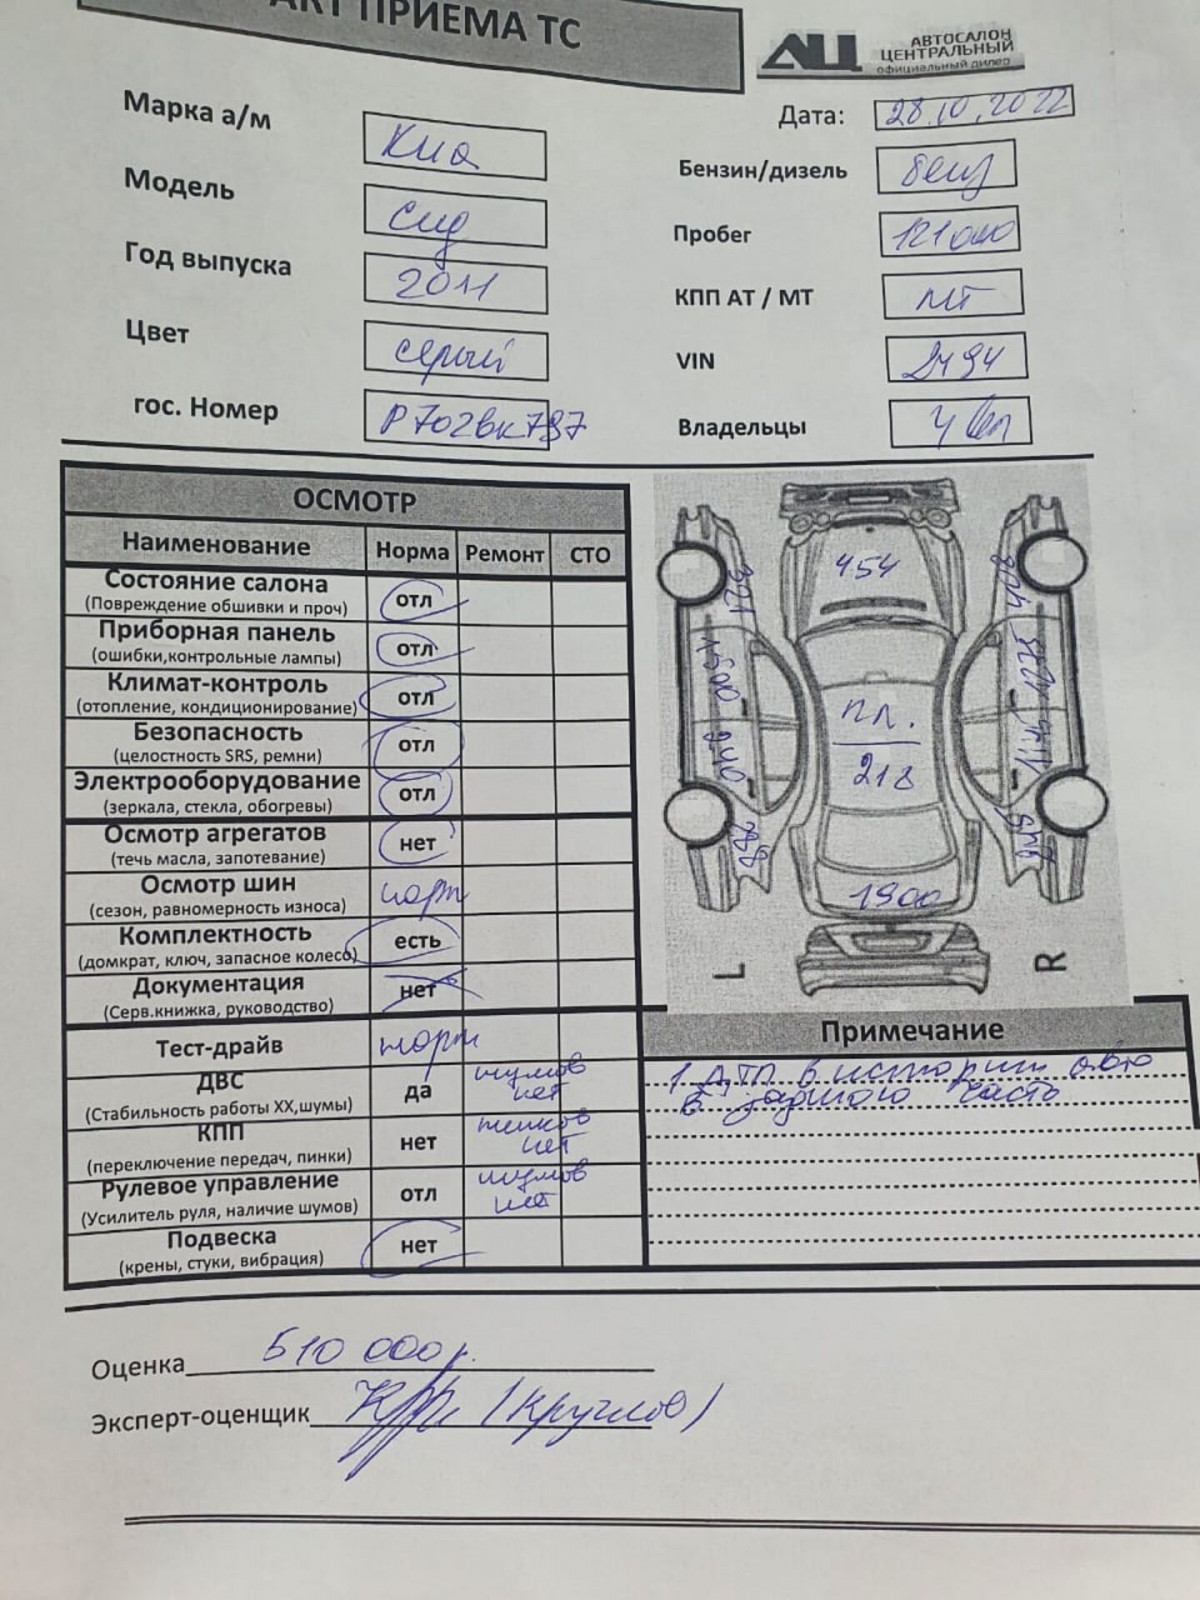 АКТ ПРИЕМА ТС
АВТОСАЛОН
ЦЕНТРАЛЬНЫЙ
официальный дилер
АЦ
Дата: 28.10.2022
Марка а/м Киа
Бензин/дизель бенз
Модель Сид
Пробег 121000
Год выпуска 2011
КПП АТ / МТ МТ
Цвет серый
VIN 2494
гос. Номер Р702вк797
Владельцы 4
ОСМОТР
Наименование Норма Ремонт СТО
Состояние салона
(Повреждение обшивки и проч) отл
Приборная панель
(ошибки,контрольные лампы) отл
Климат-контроль
(отопление, кондиционирование) отл
Безопасность
(целостность SRS, ремни) отл
Электрооборудование
(зеркала, стекла, обогревы) отл
Осмотр агрегатов
(течь масла, запотевание) нет
Осмотр шин
(сезон, равномерность износа) норм
Комплектность
(домкрат, ключ, запасное колесо) есть
Документация
(Серв.книжка, руководство) нет
Тест-драйв норм
ДВС
(Стабильность работы ХХ,шумы) да шумов нет
КПП
(переключение передач, пинки) нет пинков нет
Рулевое управление
(Усилитель руля, наличие шумов) отл шумов нет
Подвеска
(крены, стуки, вибрация) нет
454
пл.
218
1900
L
R
Примечание
1 ДТП в истории авто
в заднюю часть
Оценка 510 000 р.
Эксперт-оценщик (Круглов)